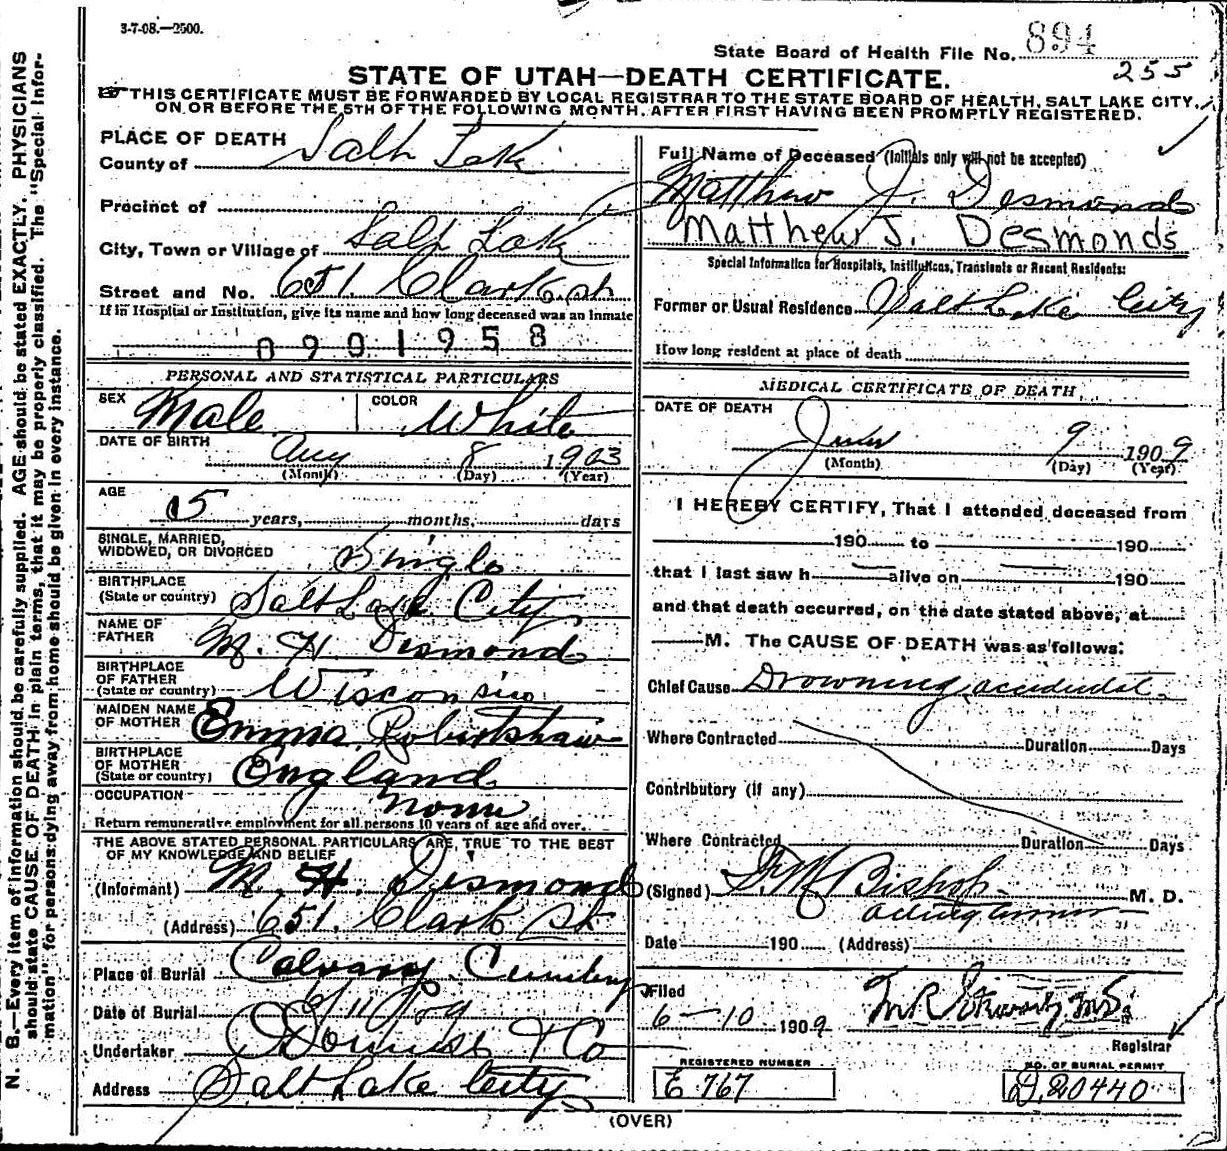 3-7-08.—2500.
State Board of Health File No. 894
255
STATE OF UTAH—DEATH CERTIFICATE.
THIS CERTIFICATE MUST BE FORWARDED BY LOCAL REGISTRAR TO THE STATE BOARD OF HEALTH, SALT LAKE CITY,
ON OR BEFORE THE 5TH OF THE FOLLOWING MONTH, AFTER FIRST HAVING BEEN PROMPTLY REGISTERED.
PLACE OF DEATH
County of Salt Lake
Precinct of
City, Town or Village of Salt Lake
Street and No. 651. Clark st
If in Hospital or Institution, give its name and how long deceased was an inmate
0901958
PERSONAL AND STATISTICAL PARTICULARS
SEX Male COLOR White
DATE OF BIRTH Aug 8 1903
(Month) (Day) (Year)
AGE
5 years, months, days
SINGLE, MARRIED,
WIDOWED, OR DIVORCED Single
BIRTHPLACE
(State or country) Salt Lake City
NAME OF
FATHER M. H. Desmond
BIRTHPLACE
OF FATHER
(State or country) Wisconsin
MAIDEN NAME
OF MOTHER Emma Robertshaw
BIRTHPLACE
OF MOTHER
(State or country) England
OCCUPATION None
Return remunerative employment for all persons 10 years of age and over.
THE ABOVE STATED PERSONAL PARTICULARS ARE TRUE TO THE BEST
OF MY KNOWLEDGE AND BELIEF
(Informant) M. H. Desmond
(Address) 651. Clark St
Place of Burial Calvary Cemetery
Date of Burial 6/11/09
Undertaker & Co
Address Salt Lake City
Full Name of Deceased (Initials only will not be accepted)
Matthew J. Desmond
Matthew J. Desmonds
Special Information for Hospitals, Institutions, Transients or Recent Residents:
Former or Usual Residence Salt Lake City
How long resident at place of death
MEDICAL CERTIFICATE OF DEATH
DATE OF DEATH
June 9 1909
(Month) (Day) (Year)
I HEREBY CERTIFY, That I attended deceased from
190 to 190
that I last saw h alive on 190
and that death occurred, on the date stated above, at
M. The CAUSE OF DEATH was as follows:
Chief Cause Drowning accidental
Where Contracted Duration Days
Contributory (if any)
Where Contracted Duration Days
(Signed) F. M. Bishop M. D.
acting
Date 190 (Address)
Filed
6-10 1909
Registrar
REGISTERED NUMBER
E 767
NO. OF BURIAL PERMIT
D. 20440
(OVER)
N. B.—Every item of information should be carefully supplied. AGE should be stated EXACTLY. PHYSICIANS
should state CAUSE OF DEATH in plain terms, that it may be properly classified. The "Special Infor-
mation" for persons dying away from home should be given in every instance.